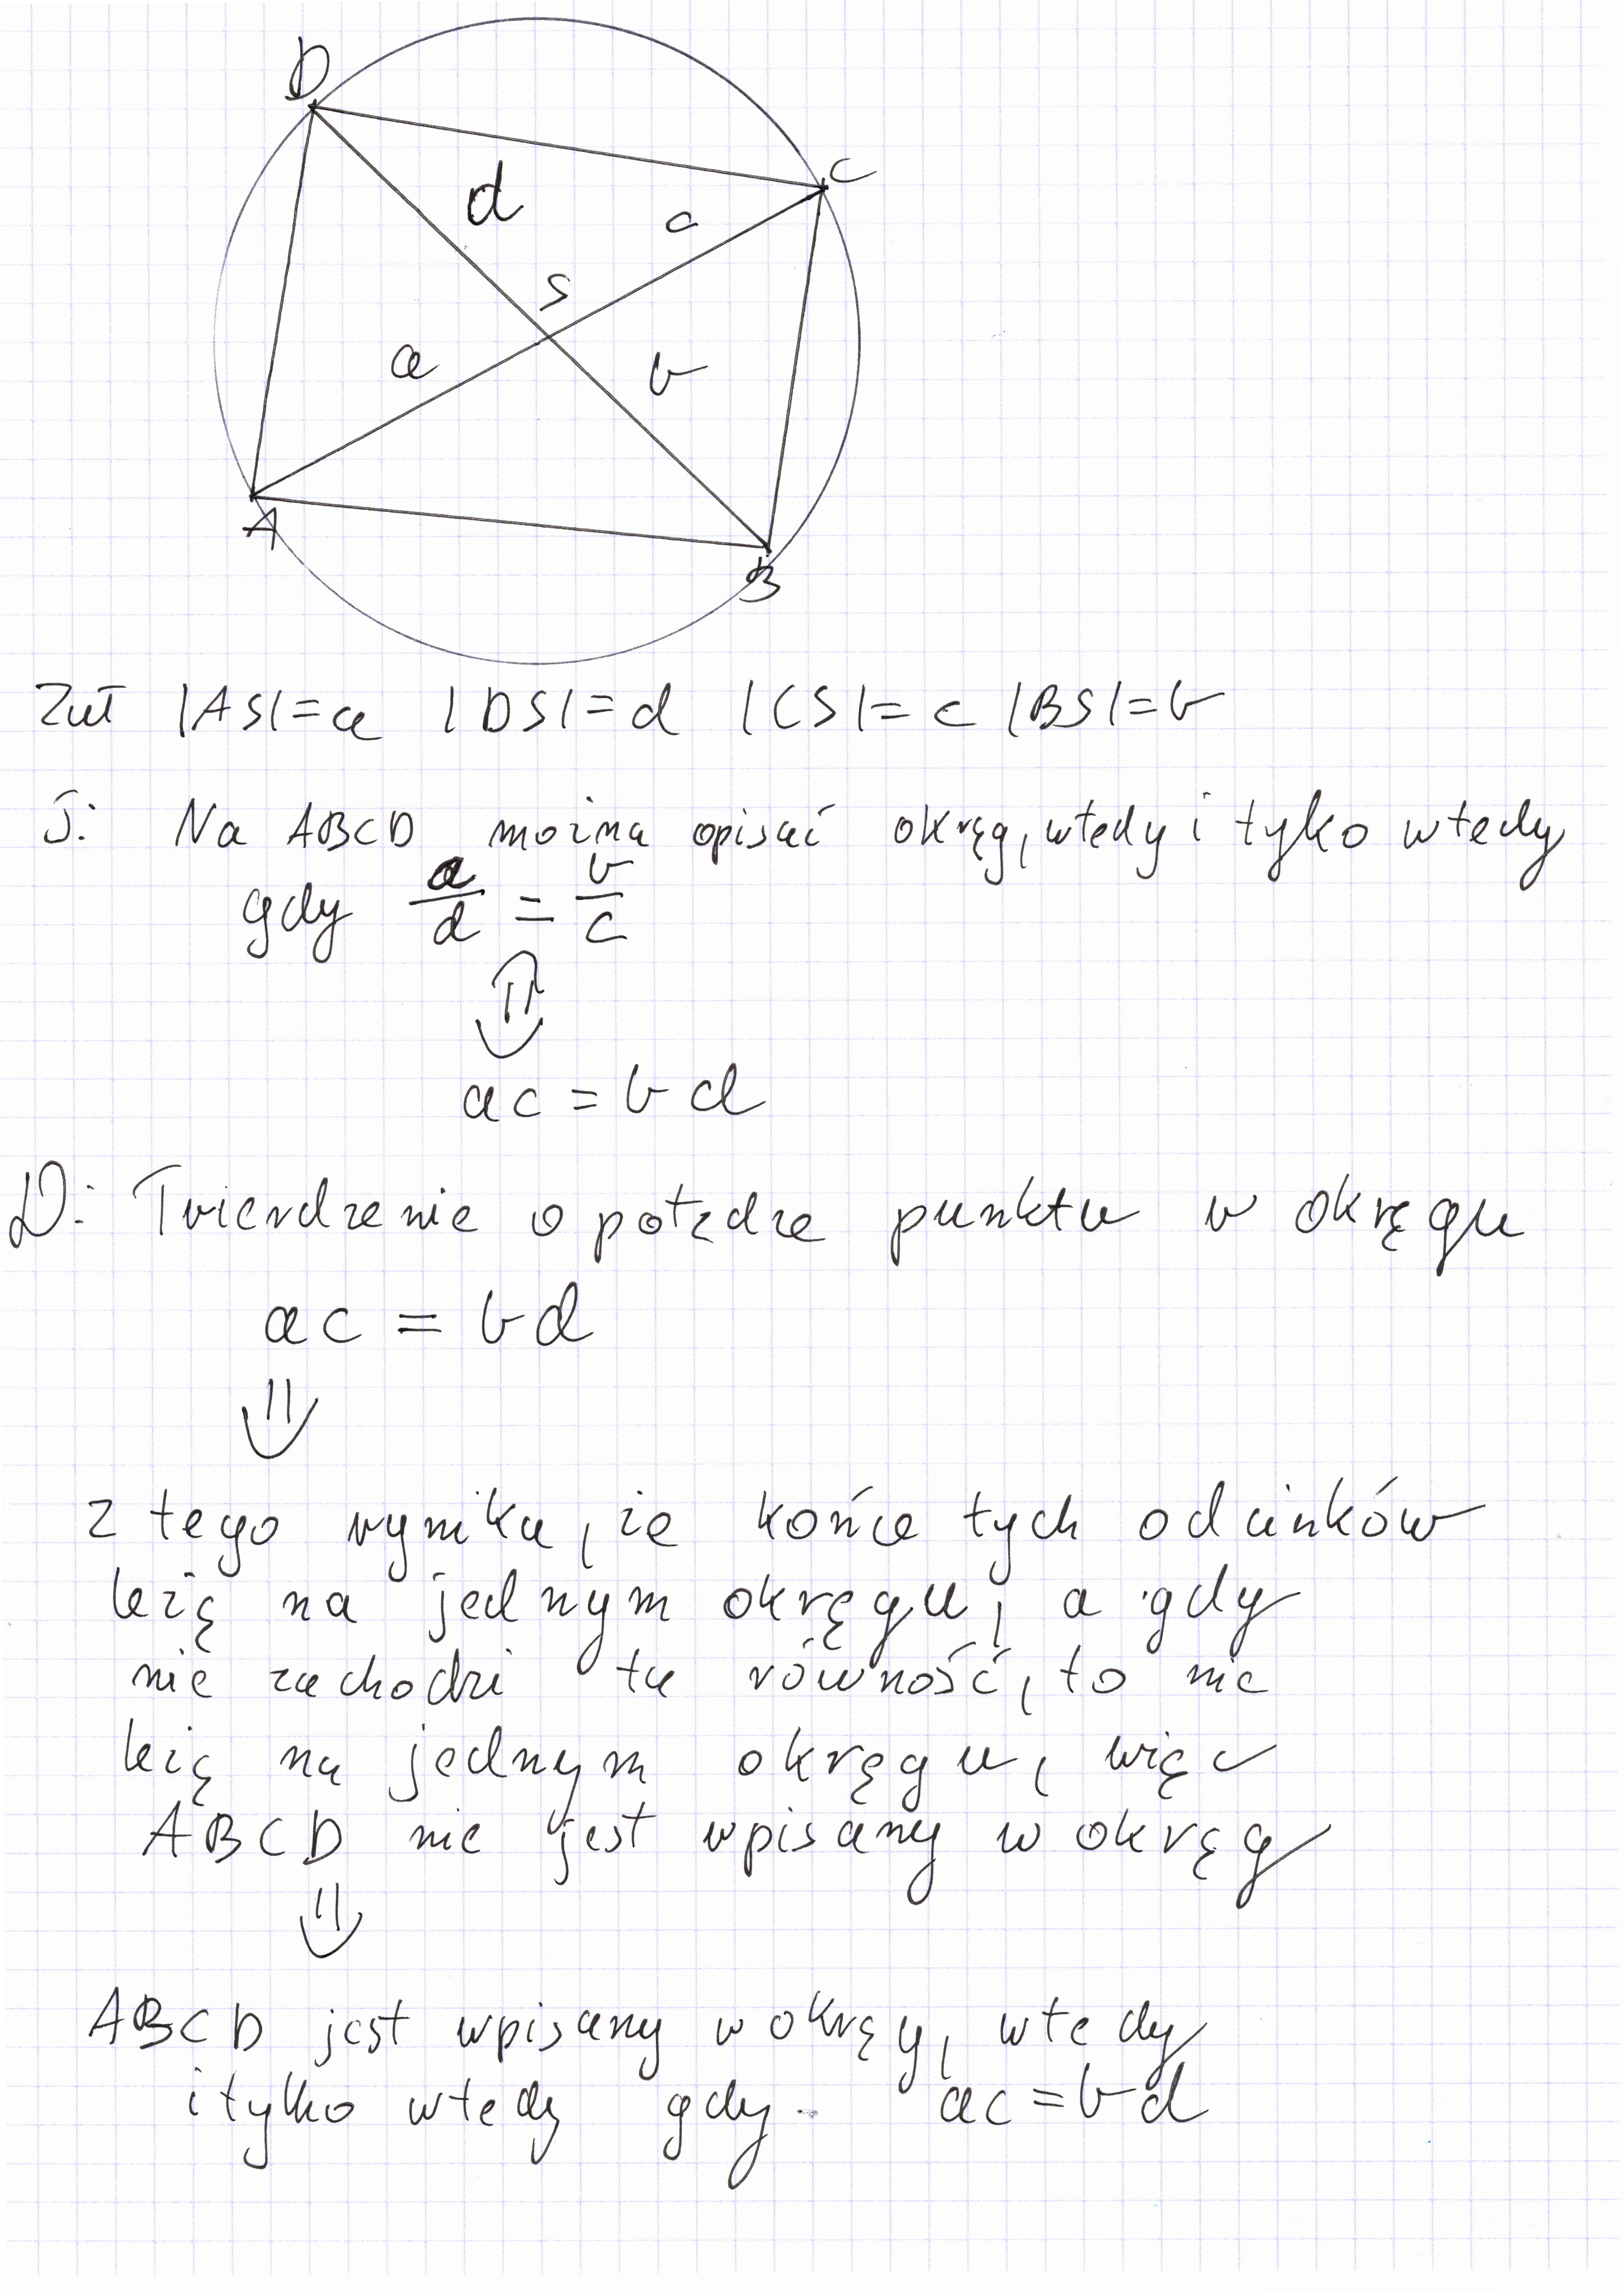 D
C
d
c
S
a
b
A
B
Zał |AS|=a |DS|=d |CS|=c |BS|=b
T: Na ABCD można opisać okręg, wtedy i tylko wtedy
gdy a/d = b/c
⇕
ac = bd
D: Twierdzenie o potędze punktu w okręgu
ac = bd
⇓
z tego wynika, że końce tych odcinków
leżą na jednym okręgu, a gdy
nie zachodzi ta równość, to nie
leżą na jednym okręgu, więc
ABCD nie jest wpisany w okręg
⇓
ABCD jest wpisany w okręg, wtedy
i tylko wtedy gdy ac = bd